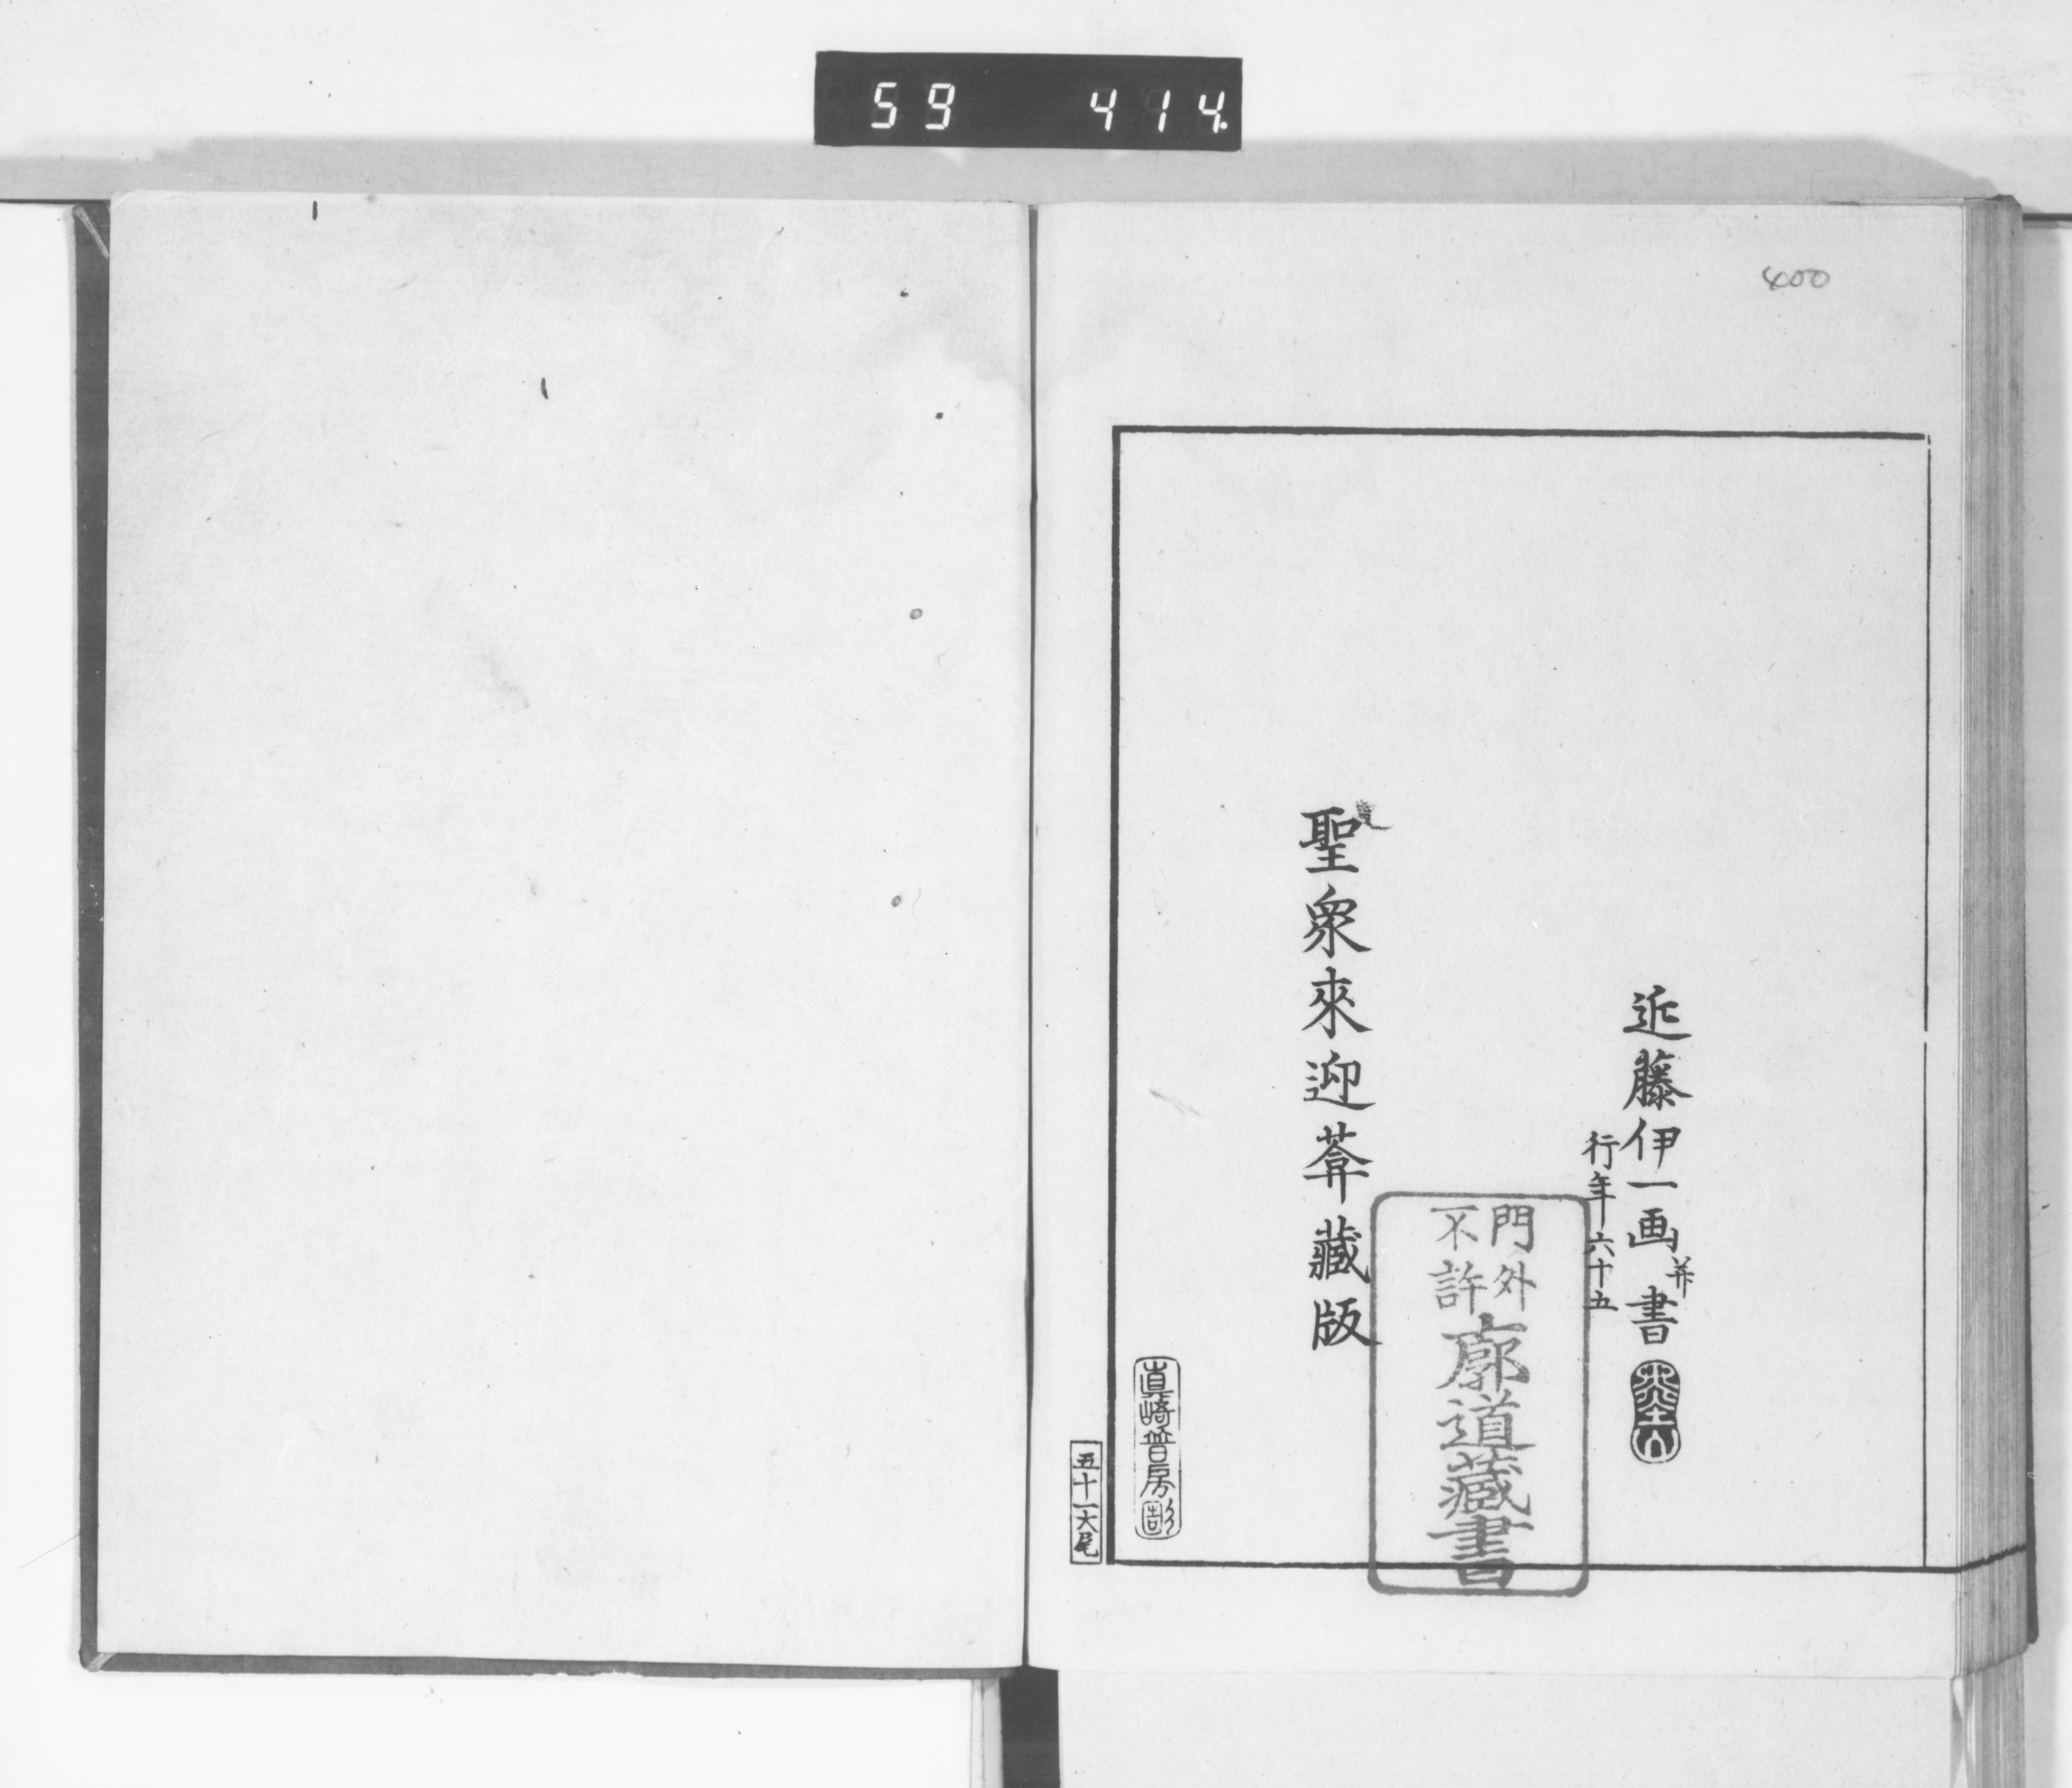 59 414
400
近藤伊一画并書
行年六十五
門外
不許
廓道藏書
聖衆來迎葊藏版
真崎普房彫
五十一大尾